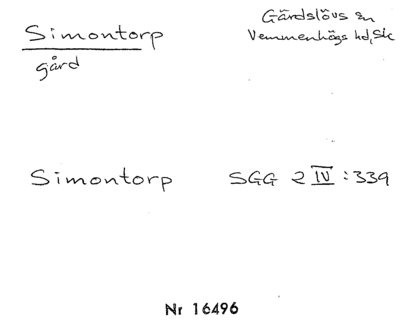 Simontorp
gård
Gärdslövs sn
Vemmenhögs hd, Sk
Simontorp
SGG 2 IV : 339
Nr 16496